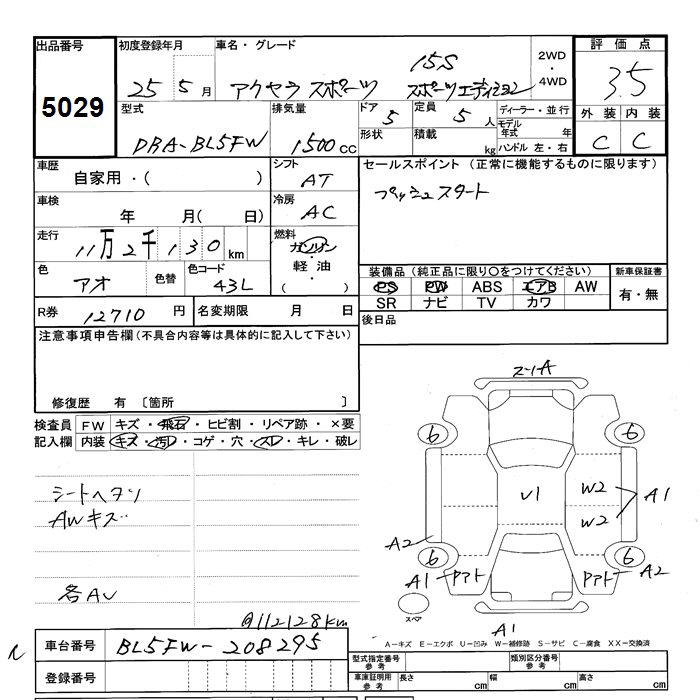 出品番号 初度登録年月 車名・グレード 15S 2WD・4WD 評価点
5029 25 5月 アクセラ スポーツ スポーツエディション 3.5
型式 排気量 ドア 5 定員 5人 ディーラー・並行 外装 内装
DBA-BL5FW 1500cc 形状 積載 kg モデル年式 年 C C
ハンドル 左・右
車歴 自家用・( ) シフト AT セールスポイント (正常に機能するものに限ります)
車検 年 月( 日) 冷房 AC プッシュスタート
走行 11万2千130km 燃料 ガソリン・軽油・( )
色 アオ 色替 色コード 43L 装備品(純正品に限り○をつけてください) 新車保証書
PS PW ABS エアB AW 有・無
SR ナビ TV カワ
R券 12710円 名変期限 月 日 後日品
注意事項申告欄(不具合内容等は具体的に記入して下さい)
修復歴 有 〔箇所 〕
検査員 FW キズ・飛石・ヒビ割・リペア跡・×要
記入欄 内装 キズ・汚レ・コゲ・穴・スレ・キレ・破レ
シートヘタリ
AWキズ
各AU
@112128km
6 6
U1 W2
W2 A1
A2
6 6
A1 A2
スペア
A1
A-キズ E-エクボ U-凹み W-補修跡 S-サビ C-腐食 XX-交換済
車台番号 BL5FW-208295
登録番号
型式指定番号 参考 類別区分番号 参考
車庫証明用 参考 長さ cm 幅 cm 高さ cm